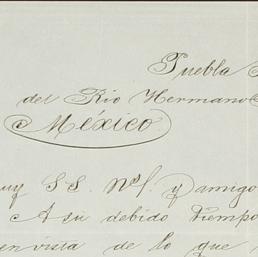 Puebla
del Rio Hermano
México
muy SS. Ns/. y amigo
A su debido tiempo
en vista de lo que